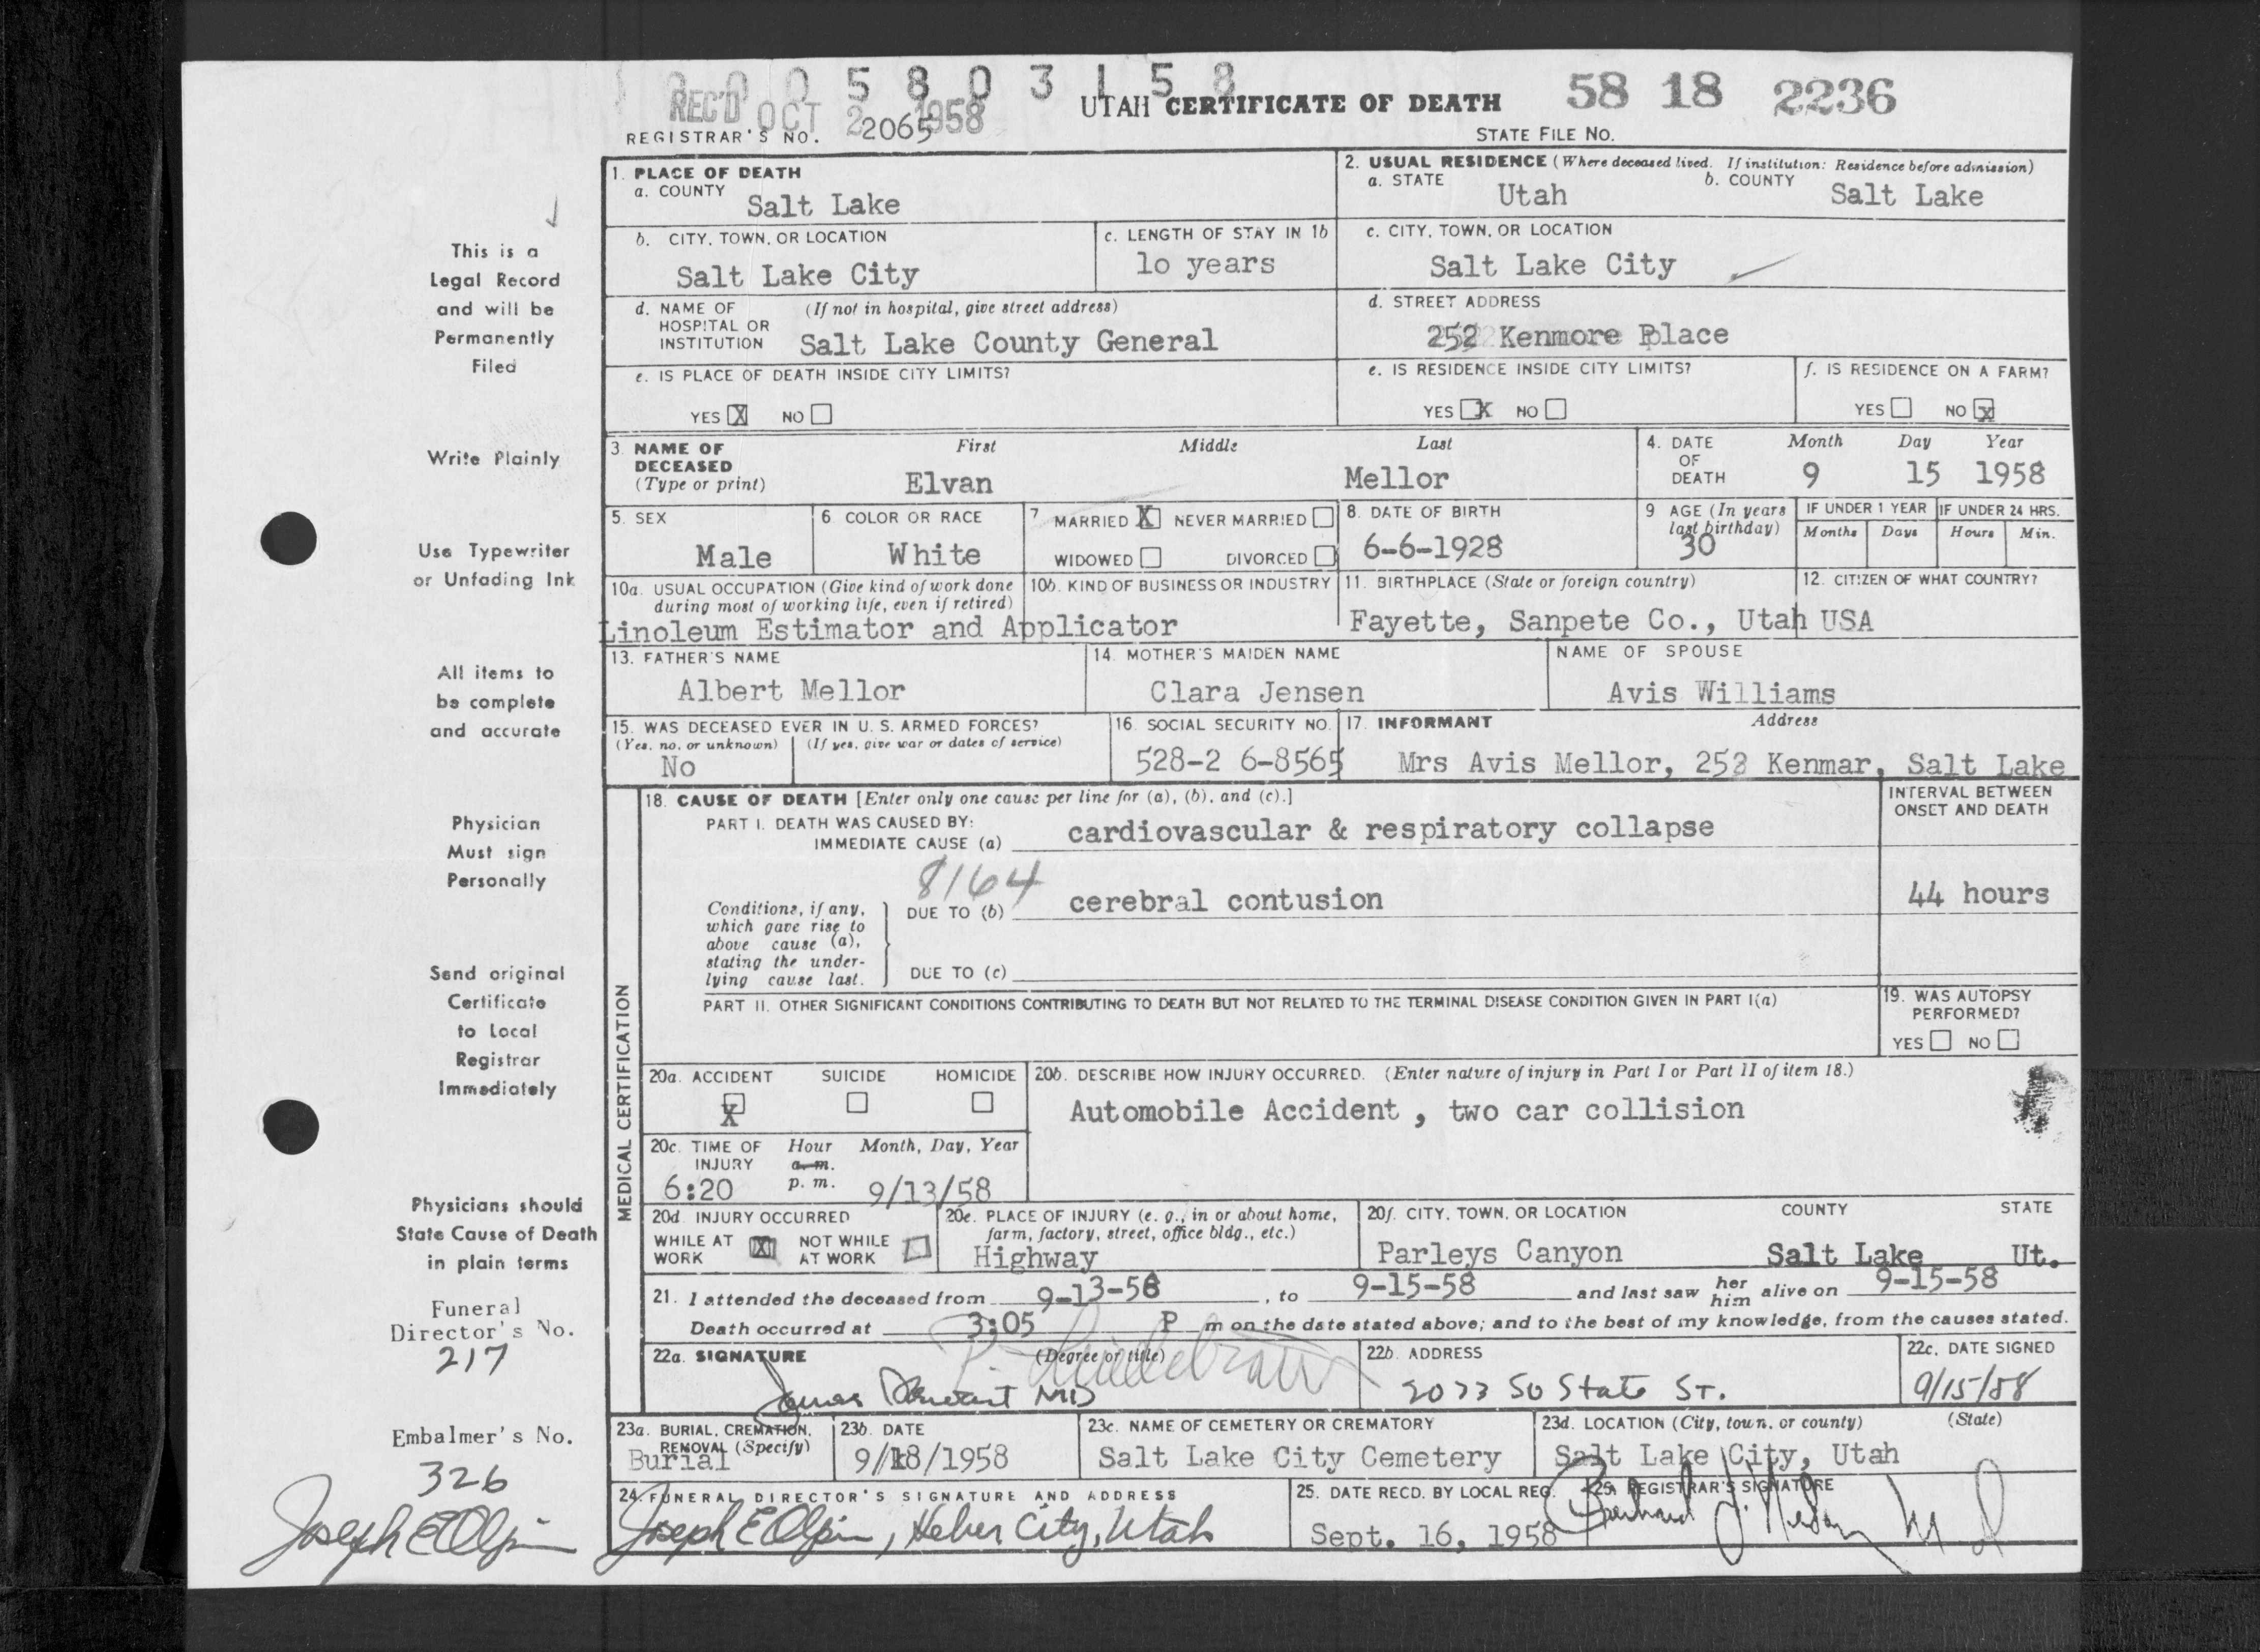 0 0 5 8 0 3 1 5 8
REC'D OCT 2 1958
UTAH CERTIFICATE OF DEATH
58 18 2236
REGISTRAR'S NO. 2065
STATE FILE NO.
This is a
Legal Record
and will be
Permanently
Filed
Write Plainly
Use Typewriter
or Unfading Ink
All items to
be complete
and accurate
Physician
Must sign
Personally
Send original
Certificate
to Local
Registrar
Immediately
Physicians should
State Cause of Death
in plain terms
Funeral
Director's No.
217
Embalmer's No.
326
Joseph E Olpin
1. PLACE OF DEATH
a. COUNTY
Salt Lake
b. CITY, TOWN, OR LOCATION
Salt Lake City
c. LENGTH OF STAY IN 1b
lo years
d. NAME OF HOSPITAL OR INSTITUTION (If not in hospital, give street address)
Salt Lake County General
e. IS PLACE OF DEATH INSIDE CITY LIMITS?
YES X NO
2. USUAL RESIDENCE (Where deceased lived. If institution: Residence before admission)
a. STATE
Utah
b. COUNTY
Salt Lake
c. CITY, TOWN, OR LOCATION
Salt Lake City
d. STREET ADDRESS
252 Kenmore Place
e. IS RESIDENCE INSIDE CITY LIMITS?
YES X NO
f. IS RESIDENCE ON A FARM?
YES NO X
3. NAME OF DECEASED (Type or print)
First Middle Last
Elvan Mellor
4. DATE OF DEATH
Month Day Year
9 15 1958
5. SEX
Male
6 COLOR OR RACE
White
7 MARRIED X NEVER MARRIED
WIDOWED DIVORCED
8. DATE OF BIRTH
6-6-1928
9 AGE (In years last birthday)
30
IF UNDER 1 YEAR
Months Days
IF UNDER 24 HRS.
Hours Min.
10a. USUAL OCCUPATION (Give kind of work done during most of working life, even if retired)
10b. KIND OF BUSINESS OR INDUSTRY
Linoleum Estimator and Applicator
11. BIRTHPLACE (State or foreign country)
Fayette, Sanpete Co., Utah
12. CITIZEN OF WHAT COUNTRY?
USA
13. FATHER'S NAME
Albert Mellor
14. MOTHER'S MAIDEN NAME
Clara Jensen
NAME OF SPOUSE
Avis Williams
15. WAS DECEASED EVER IN U. S. ARMED FORCES?
(Yes, no, or unknown) (If yes, give war or dates of service)
No
16. SOCIAL SECURITY NO.
528-2 6-8565
17. INFORMANT Address
Mrs Avis Mellor, 252 Kenmar, Salt Lake
MEDICAL CERTIFICATION
18. CAUSE OF DEATH [Enter only one cause per line for (a), (b), and (c).]
INTERVAL BETWEEN ONSET AND DEATH
PART I. DEATH WAS CAUSED BY:
IMMEDIATE CAUSE (a) cardiovascular & respiratory collapse
8164
Conditions, if any, which gave rise to above cause (a), stating the underlying cause last.
DUE TO (b) cerebral contusion
44 hours
DUE TO (c)
PART II. OTHER SIGNIFICANT CONDITIONS CONTRIBUTING TO DEATH BUT NOT RELATED TO THE TERMINAL DISEASE CONDITION GIVEN IN PART I(a)
19. WAS AUTOPSY PERFORMED?
YES NO
20a. ACCIDENT SUICIDE HOMICIDE
X
20b. DESCRIBE HOW INJURY OCCURRED. (Enter nature of injury in Part I or Part II of item 18.)
Automobile Accident , two car collision
20c. TIME OF INJURY Hour Month, Day, Year
a. m.
p. m.
6:20 9/13/58
20d. INJURY OCCURRED
WHILE AT WORK X NOT WHILE AT WORK
20e. PLACE OF INJURY (e. g., in or about home, farm, factory, street, office bldg., etc.)
Highway
20f. CITY, TOWN, OR LOCATION COUNTY STATE
Parleys Canyon Salt Lake Ut.
21. I attended the deceased from 9-13-58, to 9-15-58 and last saw her him alive on 9-15-58
Death occurred at 3:05 P m on the date stated above; and to the best of my knowledge, from the causes stated.
22a. SIGNATURE (Degree or title)
James MD
22b. ADDRESS
2033 So State St.
22c. DATE SIGNED
9/15/58
23a. BURIAL, CREMATION, REMOVAL (Specify)
Burial
23b. DATE
9/18/1958
23c. NAME OF CEMETERY OR CREMATORY
Salt Lake City Cemetery
23d. LOCATION (City, town, or county) (State)
Salt Lake City, Utah
24. FUNERAL DIRECTOR'S SIGNATURE AND ADDRESS
Joseph E Olpin, Heber City, Utah
25. DATE RECD. BY LOCAL REG.
Sept. 16, 1958
25. REGISTRAR'S SIGNATURE